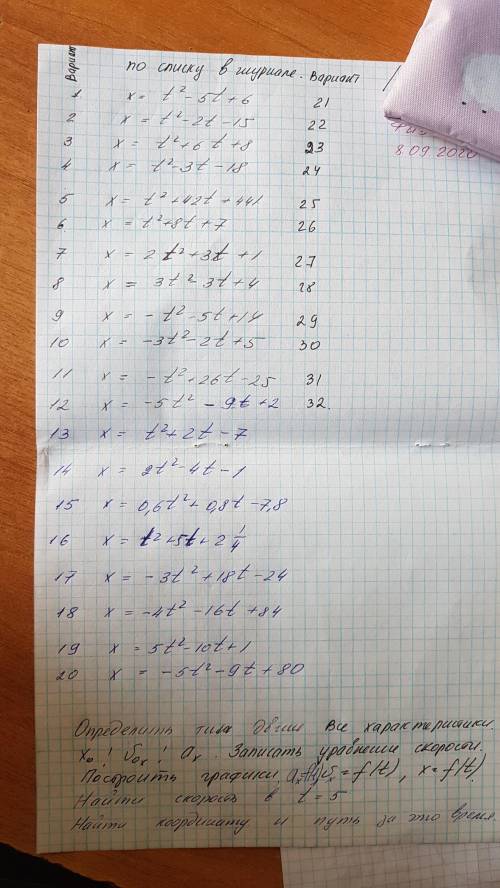 Вариант по списку в журнале. Вариант
1 x = t² - 5t + 6 21
2 x = t² - 2t - 15 22
3 x = t² + 6t + 8 23
8.09.2020
4 x = t² - 3t - 18 24
5 x = t² + 42t + 441 25
6 x = t² + 8t + 7 26
7 x = 2t² + 3t + 1 27
8 x = 3t² - 3t + 4 28
9 x = -t² - 5t + 14 29
10 x = -3t² - 2t + 5 30
11 x = -t² + 26t - 25 31
12 x = -5t² - 9t + 2 32.
13 x = t² + 2t - 7
14 x = 2t² - 4t - 1
15 x = 0,6t² + 0,8t - 7,8
16 x = t² + 5t + 2 1/4
17 x = -3t² + 18t - 24
18 x = -4t² - 16t + 84
19 x = 5t² - 10t + 1
20 x = -5t² - 9t + 80
Определить тип все характеристики.
x₀! υ₀ₓ! aₓ. Записать уравнение скорости.
Построить графики, aₓf(t) υₓ = f(t), x = f(t)
Найти скорость в t = 5
Найти координату и путь за это время.